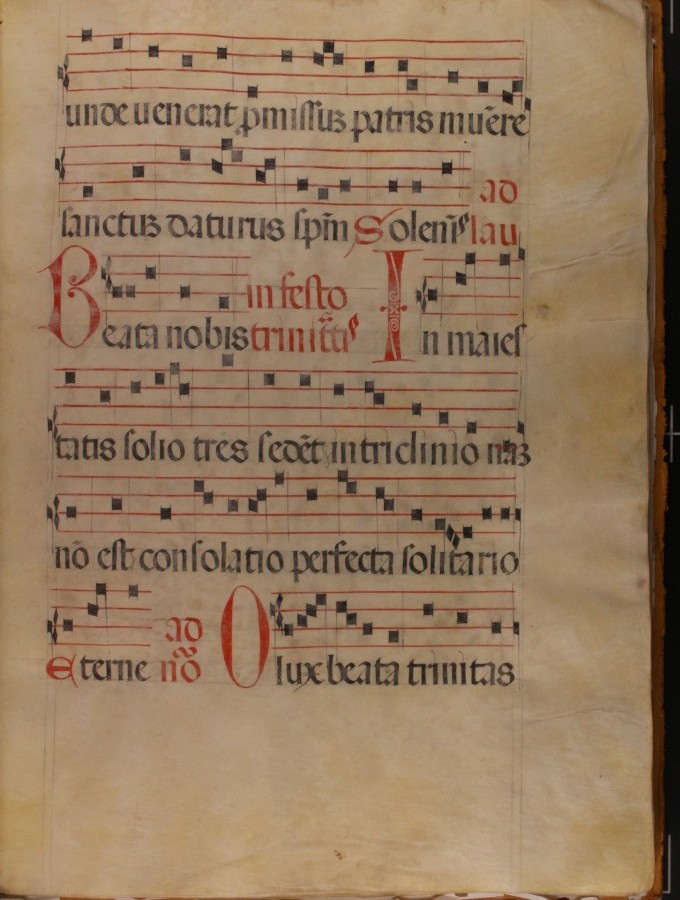 unde uenerat p̱missus patris mu̅ere
sanctus daturus spm̅ Solenı̅s ad lau
Beata nobis in festo trinitatis In maies
tatis solio tres sede̅t in triclinio na̅z
no̅ est consolatio perfecta solitario
Eterne ad no̅ O lux beata trinitas